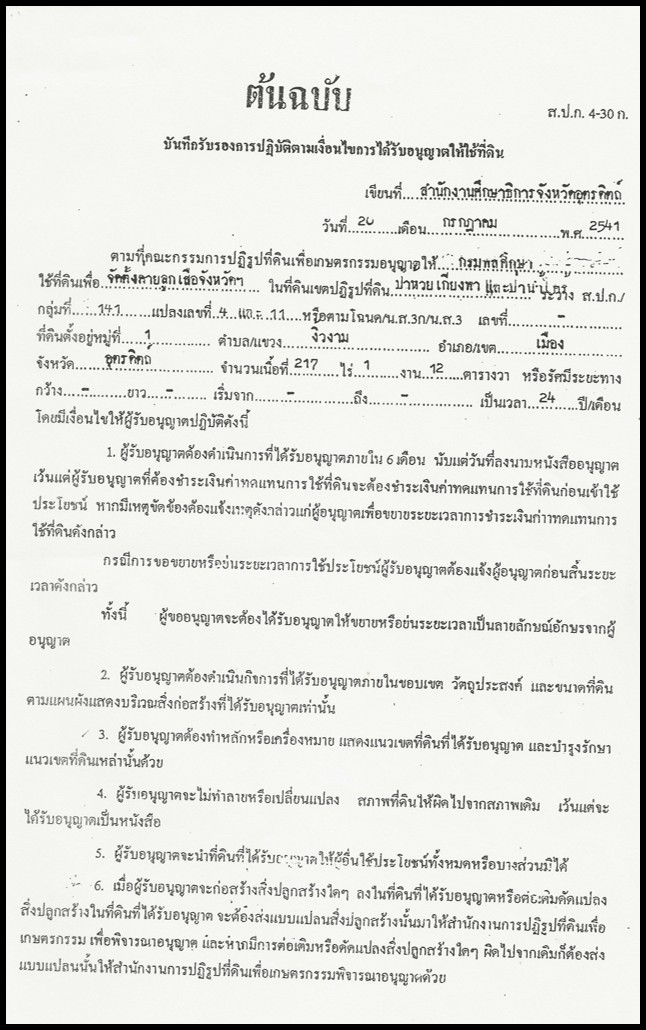 ต้นฉบับ
ส.ป.ก. 4-30 ก.
บันทึกรับรองการปฏิบัติตามเงื่อนไขการได้รับอนุญาตให้ใช้ที่ดิน
เขียนที่ สำนักงานศึกษาธิการจังหวัดอุตรดิตถ์
วันที่ 20 เดือน กรกฎาคม พ.ศ. 2541
ตามที่คณะกรรมการปฏิรูปที่ดินเพื่อเกษตรกรรมอนุญาตให้ กรมพลศึกษา
ใช้ที่ดินเพื่อ จัดตั้งค่ายลูกเสือจังหวัดฯ ในที่ดินเขตปฏิรูปที่ดิน ป่าห้วยเกียงพา และ ระวาง ส.ป.ก./
กลุ่มที่ 141 แปลงเลขที่ 4 และ 11 หรือตามโฉนด/น.ส.3ก/น.ส.3 เลขที่ -
ที่ดินตั้งอยู่หมู่ที่ 1 ตำบล/แขวง งิ้วงาม อำเภอ/เขต เมือง
จังหวัด อุตรดิตถ์ จำนวนเนื้อที่ 217 ไร่ 1 งาน 12 ตารางวา หรือรัศมีระยะทาง
กว้าง - ยาว - เริ่มจาก - ถึง - เป็นเวลา 24 ปี/เดือน
โดยมีเงื่อนไขให้ผู้รับอนุญาตปฏิบัติดังนี้
1. ผู้รับอนุญาตต้องดำเนินการที่ได้รับอนุญาตภายใน 6 เดือน นับแต่วันที่ลงนามหนังสืออนุญาต
เว้นแต่ผู้รับอนุญาตที่ต้องชำระเงินค่าทดแทนการใช้ที่ดินจะต้องชำระเงินค่าทดแทนการใช้ที่ดินก่อนเข้าใช้
ประโยชน์ หากมีเหตุขัดข้องต้องแจ้งเหตุดังกล่าวแก่ผู้อนุญาตเพื่อขยายระยะเวลาการชำระเงินค่าทดแทนการ
ใช้ที่ดินดังกล่าว
กรณีการขอขยายหรือย่นระยะเวลาการใช้ประโยชน์ผู้รับอนุญาตต้องแจ้งผู้อนุญาตก่อนสิ้นระยะ
เวลาดังกล่าว
ทั้งนี้ ผู้ขออนุญาตจะต้องได้รับอนุญาตให้ขยายหรือย่นระยะเวลาเป็นลายลักษณ์อักษรจากผู้
อนุญาต
2. ผู้รับอนุญาตต้องดำเนินกิจการที่ได้รับอนุญาตภายในขอบเขต วัตถุประสงค์ และขนาดที่ดิน
ตามแผนผังแสดงบริเวณสิ่งก่อสร้างที่ได้รับอนุญาตเท่านั้น
3. ผู้รับอนุญาตต้องทำหลักหรือเครื่องหมาย แสดงแนวเขตที่ดินที่ได้รับอนุญาต และบำรุงรักษา
แนวเขตที่ดินเหล่านั้นด้วย
4. ผู้รับอนุญาตจะไม่ทำลายหรือเปลี่ยนแปลง สภาพที่ดินให้ผิดไปจากสภาพเดิม เว้นแต่จะ
ได้รับอนุญาตเป็นหนังสือ
5. ผู้รับอนุญาตจะนำที่ดินที่ได้รับอนุญาตให้ผู้อื่นใช้ประโยชน์ทั้งหมดหรือบางส่วนมิได้
6. เมื่อผู้รับอนุญาตจะก่อสร้างสิ่งปลูกสร้างใดๆ ลงในที่ดินที่ได้รับอนุญาตหรือต่อเติมดัดแปลง
สิ่งปลูกสร้างในที่ดินที่ได้รับอนุญาต จะต้องส่งแบบแปลนสิ่งปลูกสร้างนั้นมาให้สำนักงานการปฏิรูปที่ดินเพื่อ
เกษตรกรรม เพื่อพิจารณาอนุญาต และหากมีการต่อเติมหรือดัดแปลงสิ่งปลูกสร้างใดๆ ผิดไปจากเดิมก็ต้องส่ง
แบบแปลนนั้นให้สำนักงานการปฏิรูปที่ดินเพื่อเกษตรกรรมพิจารณาอนุญาตด้วย